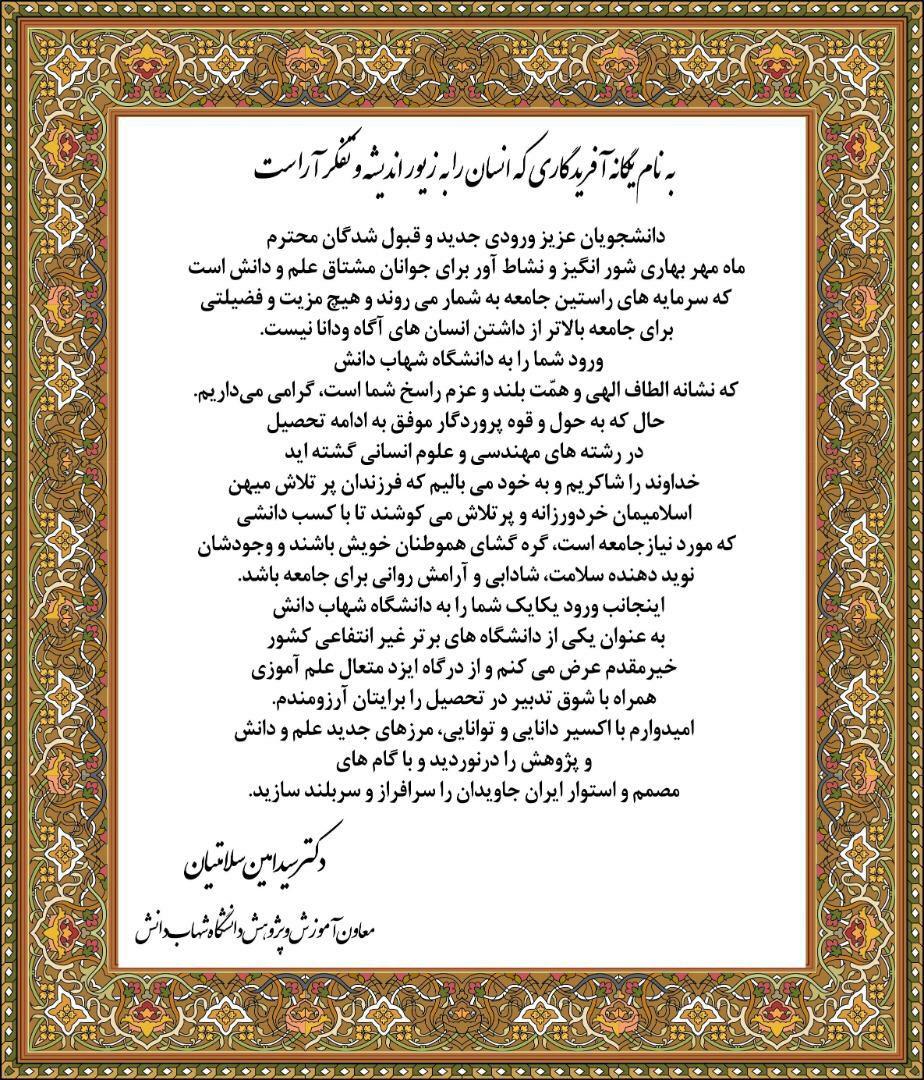 به نام یگانه آفریدگاری که انسان را به زیور اندیشه و تفکر آراست
دانشجویان عزیز ورودی جدید و قبول شدگان محترم
ماه مهر بهاری شور انگیز و نشاط آور برای جوانان مشتاق علم و دانش است
که سرمایه های راستین جامعه به شمار می روند و هیچ مزیت و فضیلتی
برای جامعه بالاتر از داشتن انسان های آگاه ودانا نیست.
ورود شما را به دانشگاه شهاب دانش
که نشانه الطاف الهی و همّت بلند و عزم راسخ شما است، گرامی می‌داریم.
حال که به حول و قوه پروردگار موفق به ادامه تحصیل
در رشته های مهندسی و علوم انسانی گشته اید
خداوند را شاکریم و به خود می بالیم که فرزندان پر تلاش میهن
اسلامیمان خردورزانه و پرتلاش می کوشند تا با کسب دانشی
که مورد نیازجامعه است، گره گشای هموطنان خویش باشند و وجودشان
نوید دهنده سلامت، شادابی و آرامش روانی برای جامعه باشد.
اینجانب ورود یکایک شما را به دانشگاه شهاب دانش
به عنوان یکی از دانشگاه های برتر غیر انتفاعی کشور
خیرمقدم عرض می کنم و از درگاه ایزد متعال علم آموزی
همراه با شوق تدبیر در تحصیل را برایتان آرزومندم.
امیدوارم با اکسیر دانایی و توانایی، مرزهای جدید علم و دانش
و پژوهش را درنوردید و با گام های
مصمم و استوار ایران جاویدان را سرافراز و سربلند سازید.
دکتر سید امین سلامتیان
معاون آموزش و پژوهش دانشگاه شهاب دانش